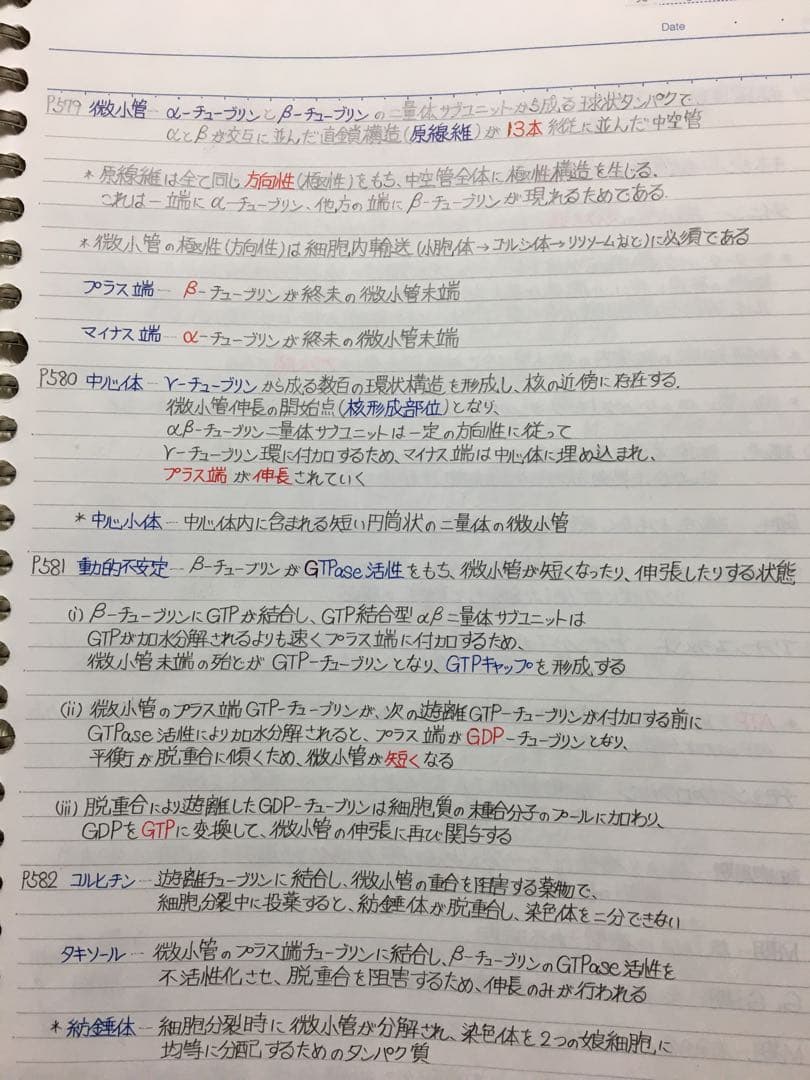 Date
P579 微小管 ─ α-チューブリンとβ-チューブリンの二量体サブユニットから成る球状タンパクで
αとβが交互に並んだ直鎖構造(原線維)が13本縦に並んだ中空管
* 原線維は全て同じ方向性(極性)をもち、中空管全体に極性構造を生じる。
これは一端にα-チューブリン、他方の端にβ-チューブリンが現れるためである。
* 微小管の極性(方向性)は細胞内輸送(小胞体→ゴルジ体→リソソームなど)に必須である
プラス端 ─ β-チューブリンが終末の微小管末端
マイナス端 ─ α-チューブリンが終末の微小管末端
P580 中心体 ─ γ-チューブリンから成る数百の環状構造を形成し、核の近傍に存在する。
微小管伸長の開始点(核形成部位)となり、
αβ-チューブリン二量体サブユニットは一定の方向性に従って
γ-チューブリン環に付加するため、マイナス端は中心体に埋め込まれ、
プラス端が伸長されていく
* 中心小体 ─ 中心体内に含まれる短い円筒状の二量体の微小管
P581 動的不安定 ─ β-チューブリンがGTPase活性をもち、微小管が短くなったり、伸張したりする状態
(i) β-チューブリンにGTPが結合し、GTP結合型αβ二量体サブユニットは
GTPが加水分解されるよりも速くプラス端に付加するため、
微小管末端の殆どがGTP-チューブリンとなり、GTPキャップを形成する
(ii) 微小管のプラス端GTP-チューブリンが、次の遊離GTP-チューブリンが付加する前に
GTPase活性により加水分解されると、プラス端がGDP-チューブリンとなり、
平衡が脱重合に傾くため、微小管が短くなる
(iii) 脱重合により遊離したGDP-チューブリンは細胞質の未重合分子のプールに加わり、
GDPをGTPに変換して、微小管の伸張に再び関与する
P582 コルヒチン ─ 遊離チューブリンに結合し、微小管の重合を阻害する薬物で、
細胞分裂中に投薬すると、紡錘体が脱重合し、染色体を二分できない
タキソール ─ 微小管のプラス端チューブリンに結合し、β-チューブリンのGTPase活性を
不活性化させ、脱重合を阻害するため、伸長のみが行われる
* 紡錘体 ─ 細胞分裂時に微小管が分解され、染色体を2つの娘細胞に
均等に分配するためのタンパク質